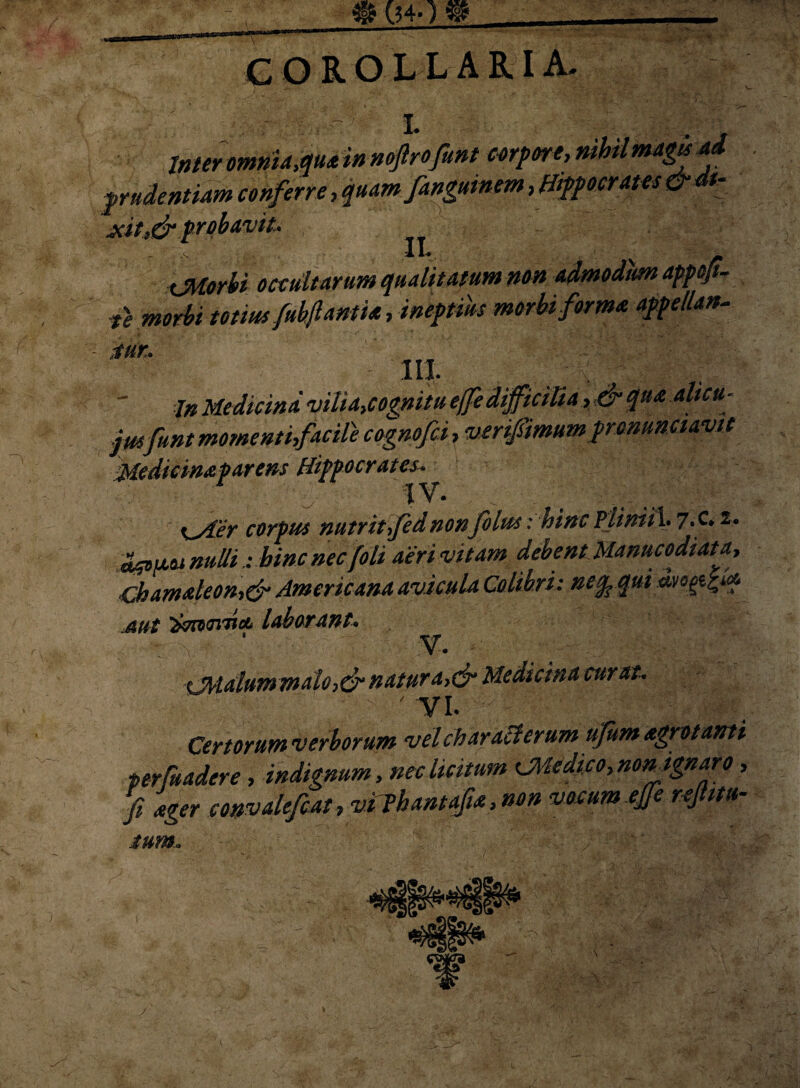 (34.)
COROLLARIA.
I.
Inter omnia,quæ in noſtro ſunt corpore, nihil magis ad
prudentiam conferre, quam ſanguinem, Hippocrates & di-
xit,& probavit.
II.
Morbi occultarum qualitatum non admodùm appoſi-
tè morbi totius ſubſtantiæ, ineptiùs morbi formæ appellan-
tur.
III.
In Medicinâ vilia,cognitu eſſe difficilia, & quæ alicu-
jus ſunt momenti,facilè cognoſci, veriſſimum pronunciavit
Medicinæ parens Hippocrates.
IV.
Aër corpus nutrit,ſed non ſolus: hinc Plinii l. 7. c. 2.
nulli: hinc nec ſoli aëri vitam debent Manucodiata,
Chamæleon,& Americana avicula Colibri: neq; qui
aut laborant.
V.
Malum malo,& natura,& Medicina curat.
VI.
Certorum verborum vel characterum uſum ægrotanti
perſuadere, indignum, nec licitum Medico, non ignaro,
ſi æger convaleſcat, vi Phantaſiæ, non vocum eſſe reſtitu-
tum.